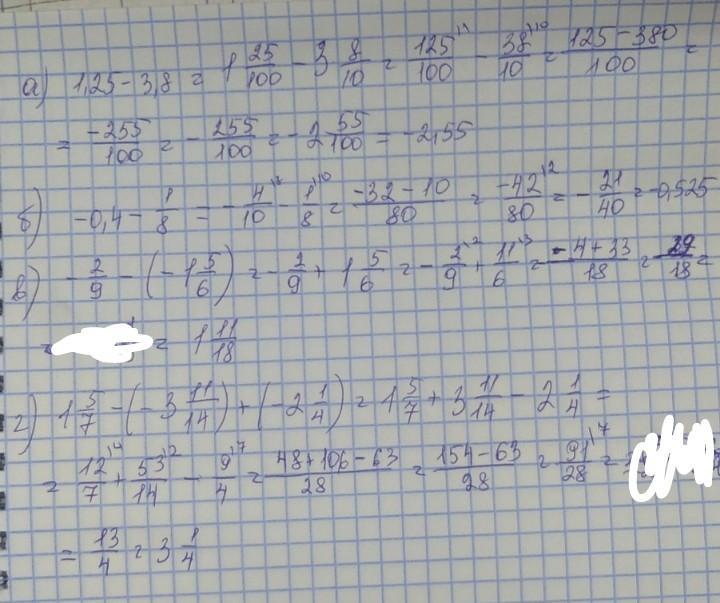 а) 1,25 - 3,8 = 1 25/100 - 3 8/10 = 125/100 \1 - 38/10 \10 = (125 - 380)/100 =
= -255/100 = - 255/100 = -2 55/100 = -2,55
б) -0,4 - 1/8 = - 4/10 \8 - 1/8 \10 = (-32 - 10)/80 = -42/80 \2 = - 21/40 = -0,525
в) - 2/9 - (-1 5/6) = - 2/9 + 1 5/6 = - 2/9 \2 + 11/6 \3 = (-4 + 33)/18 = 29/18 =
= = 1 11/18
г) 1 5/7 - (-3 11/14) + (-2 1/4) = 1 5/7 + 3 11/14 - 2 1/4 =
= 12/7 \4 + 53/14 \2 - 9/4 \7 = (48 + 106 - 63)/28 = (154 - 63)/28 = 91/28 \7 =
= 13/4 = 3 1/4